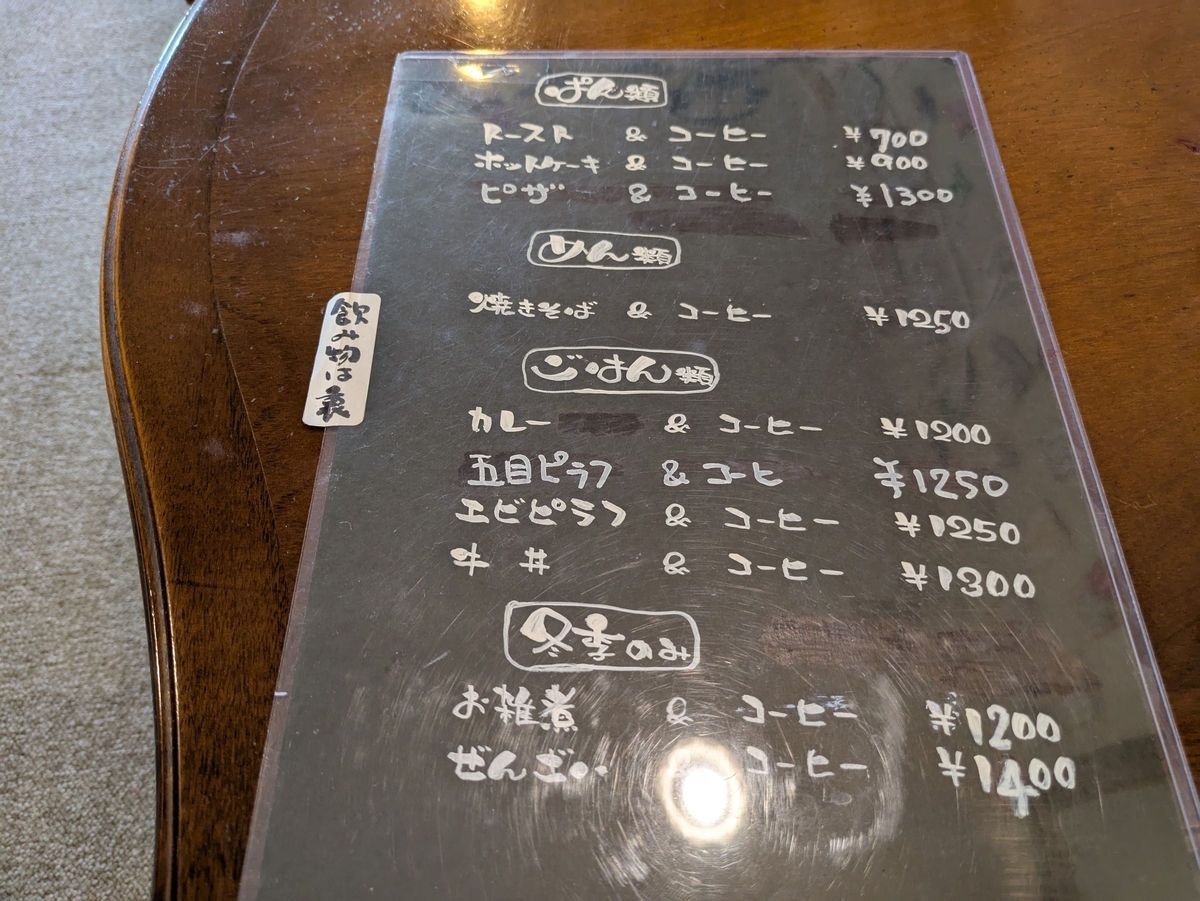 ぱん類
トースト & コーヒー ¥700
ホットケーキ & コーヒー ¥900
ピザ & コーヒー ¥1300
めん類
焼きそば & コーヒー ¥1250
ごはん類
カレー & コーヒー ¥1200
五目ピラフ & コーヒ ¥1250
エビピラフ & コーヒー ¥1250
牛丼 & コーヒー ¥1300
冬季のみ
お雑煮 & コーヒー ¥1200
ぜんざい コーヒー ¥1400
飲み物は裏